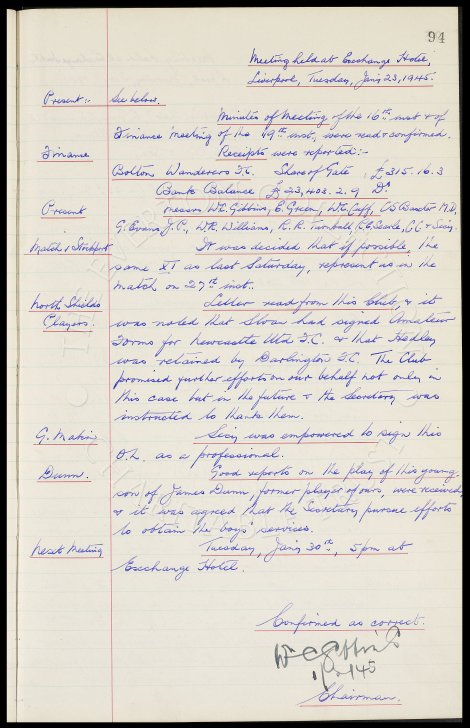 94
Meeting held at Exchange Hotel,
Liverpool, Tuesday, Jan'y 23, 1945.
Present:- See below.
Minutes of Meeting of the 16th inst & of
Finance Meeting of the 19th inst, were read & confirmed.
Finance Receipts were reported:-
Bolton Wanderers F.C. Share of Gate £315. 16. 3
Bank Balance £23,403. 2. 9 Dr
Present Messrs W.C. Gibbins, E. Green, W.C. Cuff, C.S. Baxter M.D,
G. Evans J.P., W.R. Williams, R.R. Turnbull, & Secy.
Match v Stockport It was decided that if possible, the
same XI as last Saturday, represent us in the
match on 27th inst.
North Shields Letter read from this Club, & it
Players. was noted that Sloan had signed Amateur
Forms for Newcastle Utd F.C. & that Hedley
was retained by Darlington F.C. The Club
promised further efforts on our behalf not only in
this case but in the future & the Secretary was
instructed to thank them.
G. Makin Secy was empowered to sign this
O.L. as a professional.
Dunn. Good reports on the play of this young
son of James Dunn, former player of ours, were received
& it was agreed that the Secretary pursue efforts
to obtain the boys' services.
Next Meeting Tuesday, Jan'y 30th, 5pm at
Exchange Hotel.
Confirmed as correct.
W C Gibbins
Chairman.